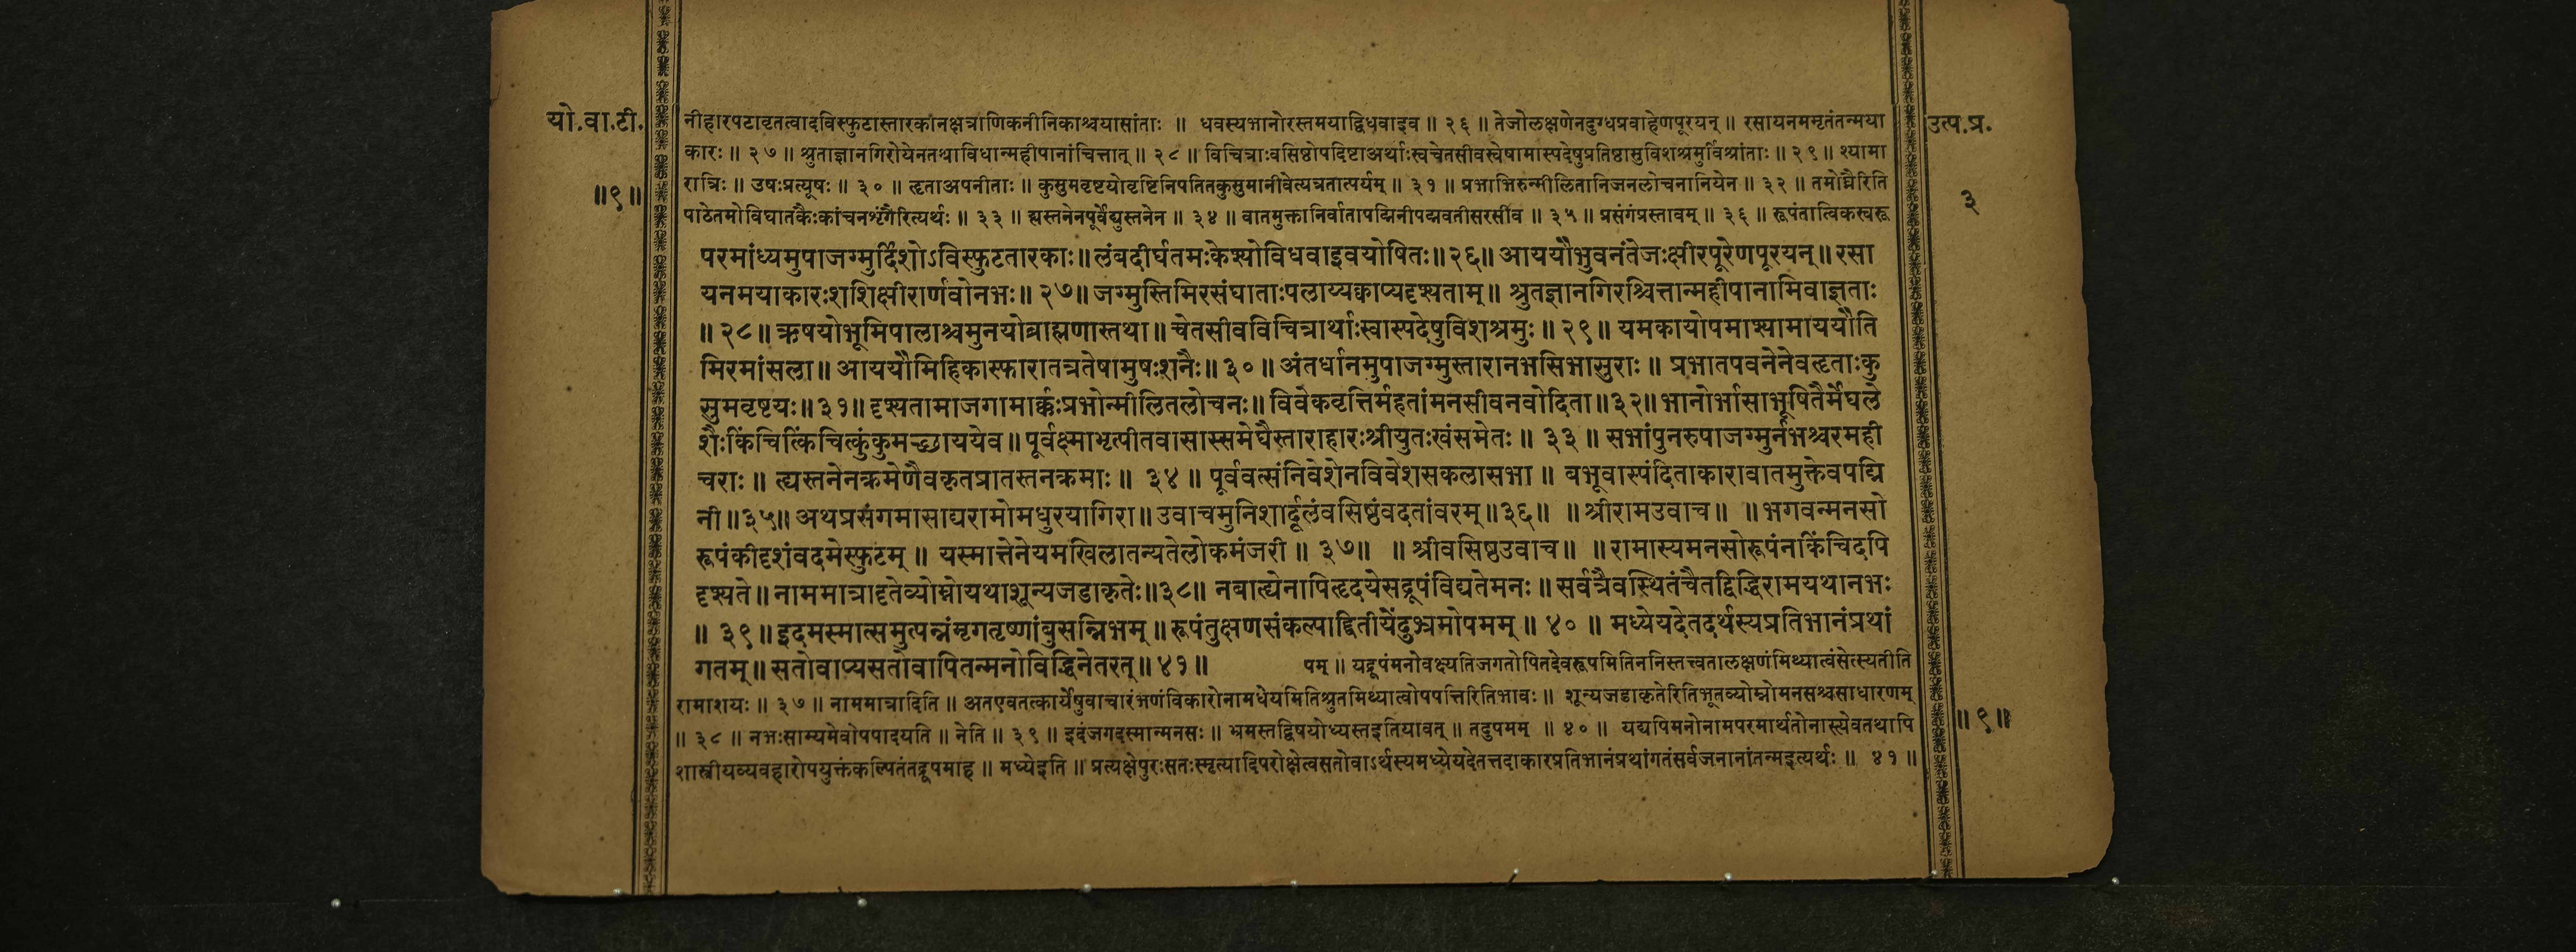 यो.वा.टी.
॥९॥
नीहारपटावृतत्वादविस्फुटास्तारकानक्षत्राणिकनीनिकाश्चयासांताः ॥ धवस्यभानोरस्तमयाद्विधवाइव ॥ २६ ॥ तेजोलक्षणेनदुग्धप्रवाहेणपूरयन् ॥ रसायनममृतंतन्मया
कारः ॥ २७ ॥ श्रुताज्ञानगिरोयेनतथाविधान्महीपानांचित्तात् ॥ २८ ॥ विचित्राःवसिष्ठोपदिष्टाअर्थाःस्वचेतसीवस्वेषामास्पदेषुप्रतिष्ठासुविशश्रमुर्विश्रांताः ॥ २९ ॥ श्यामा
रात्रिः ॥ उषःप्रत्यूषः ॥ ३० ॥ हृताअपनीताः ॥ कुसुमवृष्टयोवृष्टिनिपतितकुसुमानीवेत्यत्रतात्पर्यम् ॥ ३१ ॥ प्रभाभिरुन्मीलितानिजनलोचनानियेन ॥ ३२ ॥ तमोघ्नैरिति
पाठेतमोविघातकैःकांचनशृंगैरित्यर्थः ॥ ३३ ॥ ह्यस्तनेनपूर्वेद्युस्तनेन ॥ ३४ ॥ वातमुक्तानिर्वातापद्मिनीपद्मवतीसरसीव ॥ ३५ ॥ प्रसंगंप्रस्तावम् ॥ ३६ ॥ रूपंतात्विकस्वरू
परमांध्यमुपाजग्मुर्दिशोऽविस्फुटतारकाः॥लंबदीर्घतमःकेश्योविधवाइवयोषितः॥२६॥ आययौभुवनंतेजःक्षीरपूरेणपूरयन्॥रसा
यनमयाकारःशशिक्षीरार्णवोनभः॥ २७॥ जग्मुस्तिमिरसंघाताःपलाय्यक्वाप्यदृश्यताम्॥ श्रुतज्ञानगिरश्चित्तान्महीपानामिवाज्ञताः
॥ २८ ॥ ऋषयोभूमिपालाश्चमुनयोब्राह्मणास्तथा॥ चेतसीवविचित्रार्थाःस्वास्पदेषुविशश्रमुः ॥ २९॥ यमकायोपमाश्यामाययौति
मिरमांसला॥ आययौमिहिकास्फारातत्रतेषामुषःशनैः॥ ३० ॥ अंतर्धानमुपाजग्मुस्तारानभसिभासुराः ॥ प्रभातपवनेनेवहृताःकु
सुमवृष्टयः॥३१॥ दृश्यतामाजगामार्कःप्रभोन्मीलितलोचनः॥ विवेकवृत्तिर्महतांमनसीवनवोदिता॥३२॥ भानोर्भासाभूषितैर्मेघले
शैःकिंचित्किंचित्कुंकुमच्छाययेव॥ पूर्वक्ष्माभृत्पीतवासास्समेघैस्ताराहारःश्रीयुतःखंसमेतः ॥ ३३ ॥ सभांपुनरुपाजग्मुर्नभश्चरमही
चराः ॥ ह्यस्तनेनक्रमेणैवकृतप्रातस्तनक्रमाः ॥ ३४ ॥ पूर्ववत्संनिवेशेनविवेशसकलासभा ॥ बभूवास्पंदिताकारावातमुक्तेवपद्मि
नी॥३५॥ अथप्रसंगमासाद्यरामोमधुरयागिरा॥ उवाचमुनिशार्दूलंवसिष्ठंवदतांवरम्॥३६॥ ॥ श्रीरामउवाच॥ ॥ भगवन्मनसो
रूपंकीदृशंवदमेस्फुटम् ॥ यस्मात्तेनेयमखिलातन्यतेलोकमंजरी ॥ ३७॥ ॥ श्रीवसिष्ठउवाच॥ ॥रामास्यमनसोरूपंनकिंचिदपि
दृश्यते॥ नाममात्रादृतेव्योम्नोयथाशून्यजडाकृतेः॥३८॥ नबाह्येनापिहृदयेसद्रूपंविद्यतेमनः॥ सर्वत्रैवस्थितंचैतद्विद्धिरामयथानभः
॥ ३९ ॥ इदमस्मात्समुत्पन्नंमृगतृष्णांबुसन्निभम् ॥ रूपंतुक्षणसंकल्पाद्द्वितीयेंदुभ्रमोपमम् ॥ ४० ॥ मध्येयदेतदर्थस्यप्रतिभानंप्रथां
गतम्॥ सतोवाप्यसतोवापितन्मनोविद्धिनेतरत्॥४१॥
पम् ॥ यद्रूपंमनोवक्ष्यतिजगतोपितदेवरूपमितिननिस्तत्त्वतालक्षणंमिथ्यात्वंसेत्स्यतीति
रामाशयः ॥ ३७ ॥ नाममात्रादिति ॥ अतएवतत्कार्येषुवाचारंभणंविकारोनामधेयमितिश्रुतमिथ्यात्वोपपत्तिरितिभावः ॥ शून्यजडाकृतेरितिभूतव्योम्नोमनसश्चसाधारणम्
॥ ३८ ॥ नभःसाम्यमेवोपपादयति ॥ नेति ॥ ३९ ॥ इदंजगदस्मान्मनसः ॥ भ्रमस्तद्विषयोध्यस्तइतियावत् ॥ तदुपमम् ॥ ४० ॥ यद्यपिमनोनामपरमार्थतोनास्त्येवतथापि
शास्त्रीयव्यवहारोपयुक्तंकल्पितंतद्रूपमाह ॥ मध्येइति ॥ प्रत्यक्षेपुरःसतःस्मृत्यादिपरोक्षेत्वसतोवाऽर्थस्यमध्येयदेतत्तदाकारप्रतिभानंप्रथांगतंसर्वजनानांतन्मइत्यर्थः ॥ ४१ ॥
उत्प.प्र.
३
॥९॥